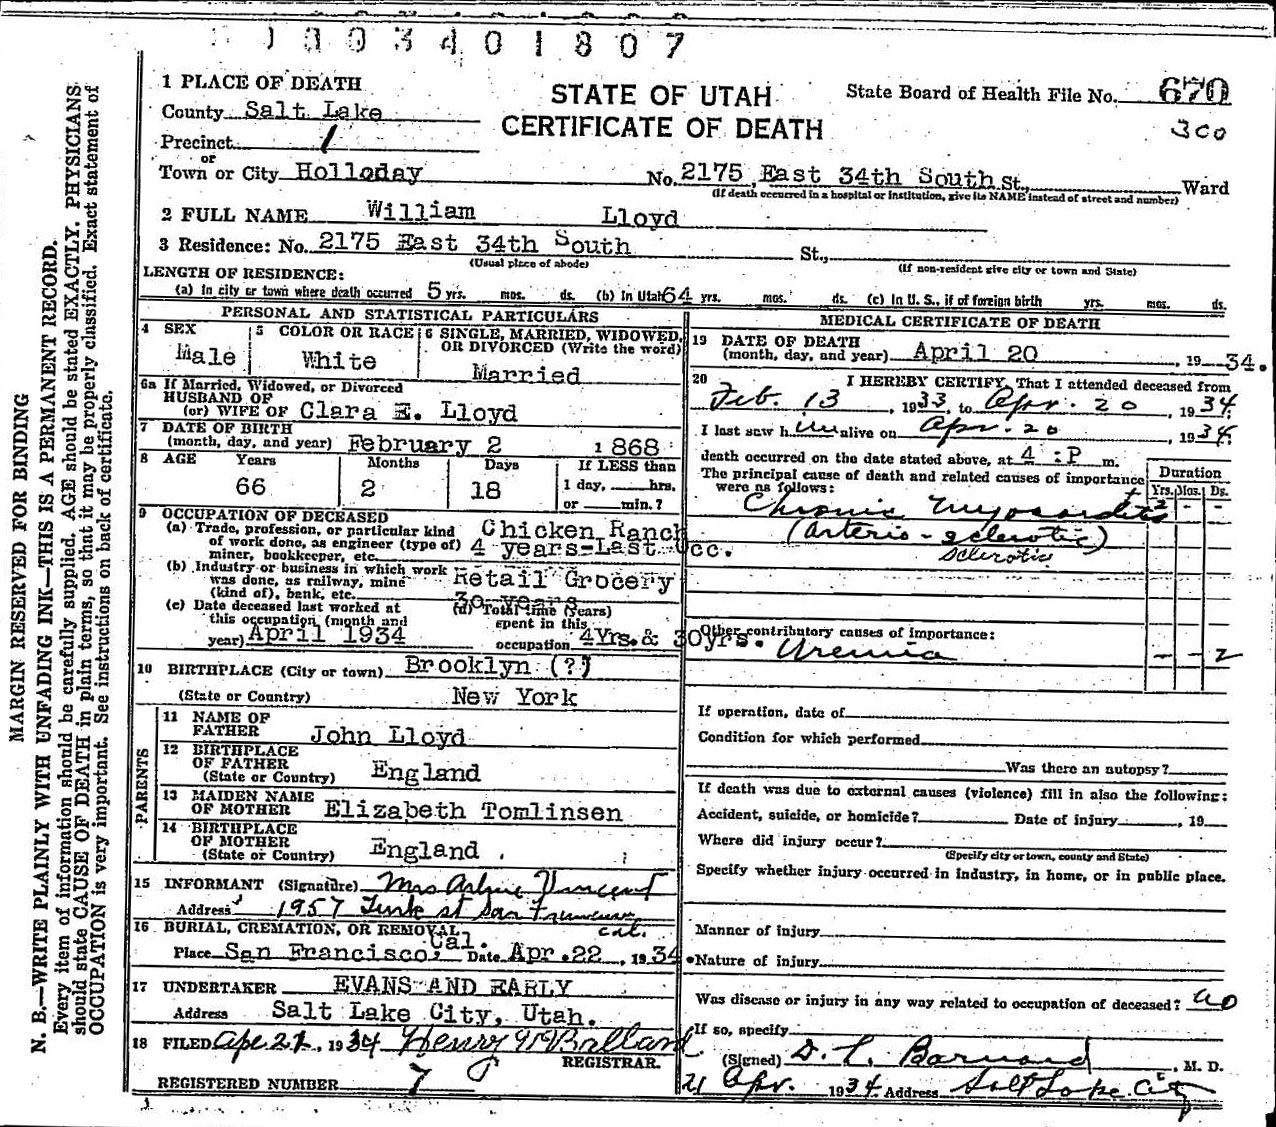 1003401807
1 PLACE OF DEATH
STATE OF UTAH
State Board of Health File No. 670
County Salt Lake
CERTIFICATE OF DEATH
300
Precinct 1
or
Town or City Holladay No. 2175 East 34th South St., Ward
(If death occurred in a hospital or institution, give its NAME instead of street and number)
2 FULL NAME William Lloyd
3 Residence: No. 2175 East 34th South St.,
(Usual place of abode) (If non-resident give city or town and State)
LENGTH OF RESIDENCE:
(a) In city or town where death occurred 5 yrs. mos. ds. (b) In Utah 64 yrs. mos. ds. (c) In U. S., if of foreign birth yrs. mos. ds.
PERSONAL AND STATISTICAL PARTICULARS
4 SEX Male
5 COLOR OR RACE White
6 SINGLE, MARRIED, WIDOWED, OR DIVORCED (Write the word) Married
6a If Married, Widowed, or Divorced
HUSBAND OF
(or) WIFE OF Clara E. Lloyd
7 DATE OF BIRTH
(month, day, and year) February 2 1868
8 AGE Years Months Days If LESS than
66 2 18 1 day, hrs.
or min.?
9 OCCUPATION OF DECEASED
(a) Trade, profession, or particular kind Chicken Ranch
of work done, as engineer (type of) 4 years-Last Occ.
miner, bookkeeper, etc.
(b) Industry or business in which work
was done, as railway, mine Retail Grocery
(kind of), bank, etc. 30 years
(c) Date deceased last worked at (d) Total time (years)
this occupation (month and spent in this
year) April 1934 occupation 4Yrs. & 30yrs.
10 BIRTHPLACE (City or town) Brooklyn (?)
(State or Country) New York
PARENTS
11 NAME OF
FATHER John Lloyd
12 BIRTHPLACE
OF FATHER
(State or Country) England
13 MAIDEN NAME
OF MOTHER Elizabeth Tomlinsen
14 BIRTHPLACE
OF MOTHER
(State or Country) England
15 INFORMANT (Signature) Mrs Vincent
Address 1957 Turk st San Francisco
Cal.
16 BURIAL, CREMATION, OR REMOVAL
Place San Francisco, Cal. Date Apr. 22, 1934
17 UNDERTAKER EVANS AND EARLY
Address Salt Lake City, Utah.
18 FILED Apr 21, 1934 Henry W Ballard
REGISTRAR.
REGISTERED NUMBER 7
MEDICAL CERTIFICATE OF DEATH
19 DATE OF DEATH
(month, day, and year) April 20, 1934.
20 I HEREBY CERTIFY, That I attended deceased from
Feb. 13, 1933, to Apr. 20, 1934.
I last saw him alive on Apr. 20, 1934.
death occurred on the date stated above, at 4:P m.
The principal cause of death and related causes of importance
were as follows:
Duration
Yrs. Mos. Ds.
Chronic Myocarditis 2 - -
(Arterio-sclerotic)
sclerotic
Other contributory causes of importance:
Uremia - - 2
If operation, date of
Condition for which performed
Was there an autopsy?
If death was due to external causes (violence) fill in also the following:
Accident, suicide, or homicide? Date of injury, 19
Where did injury occur?
(Specify city or town, county and State)
Specify whether injury occurred in industry, in home, or in public place.
Manner of injury
Nature of injury
Was disease or injury in any way related to occupation of deceased? no
If so, specify
(Signed) D. L. Barnard, M. D.
21 Apr. 1934 Address Salt Lake City
MARGIN RESERVED FOR BINDING
N. B.—WRITE PLAINLY WITH UNFADING INK—THIS IS A PERMANENT RECORD.
Every item of information should be carefully supplied. AGE should be stated EXACTLY. PHYSICIANS
should state CAUSE OF DEATH in plain terms, so that it may be properly classified. Exact statement of
OCCUPATION is very important. See instructions on back of certificate.